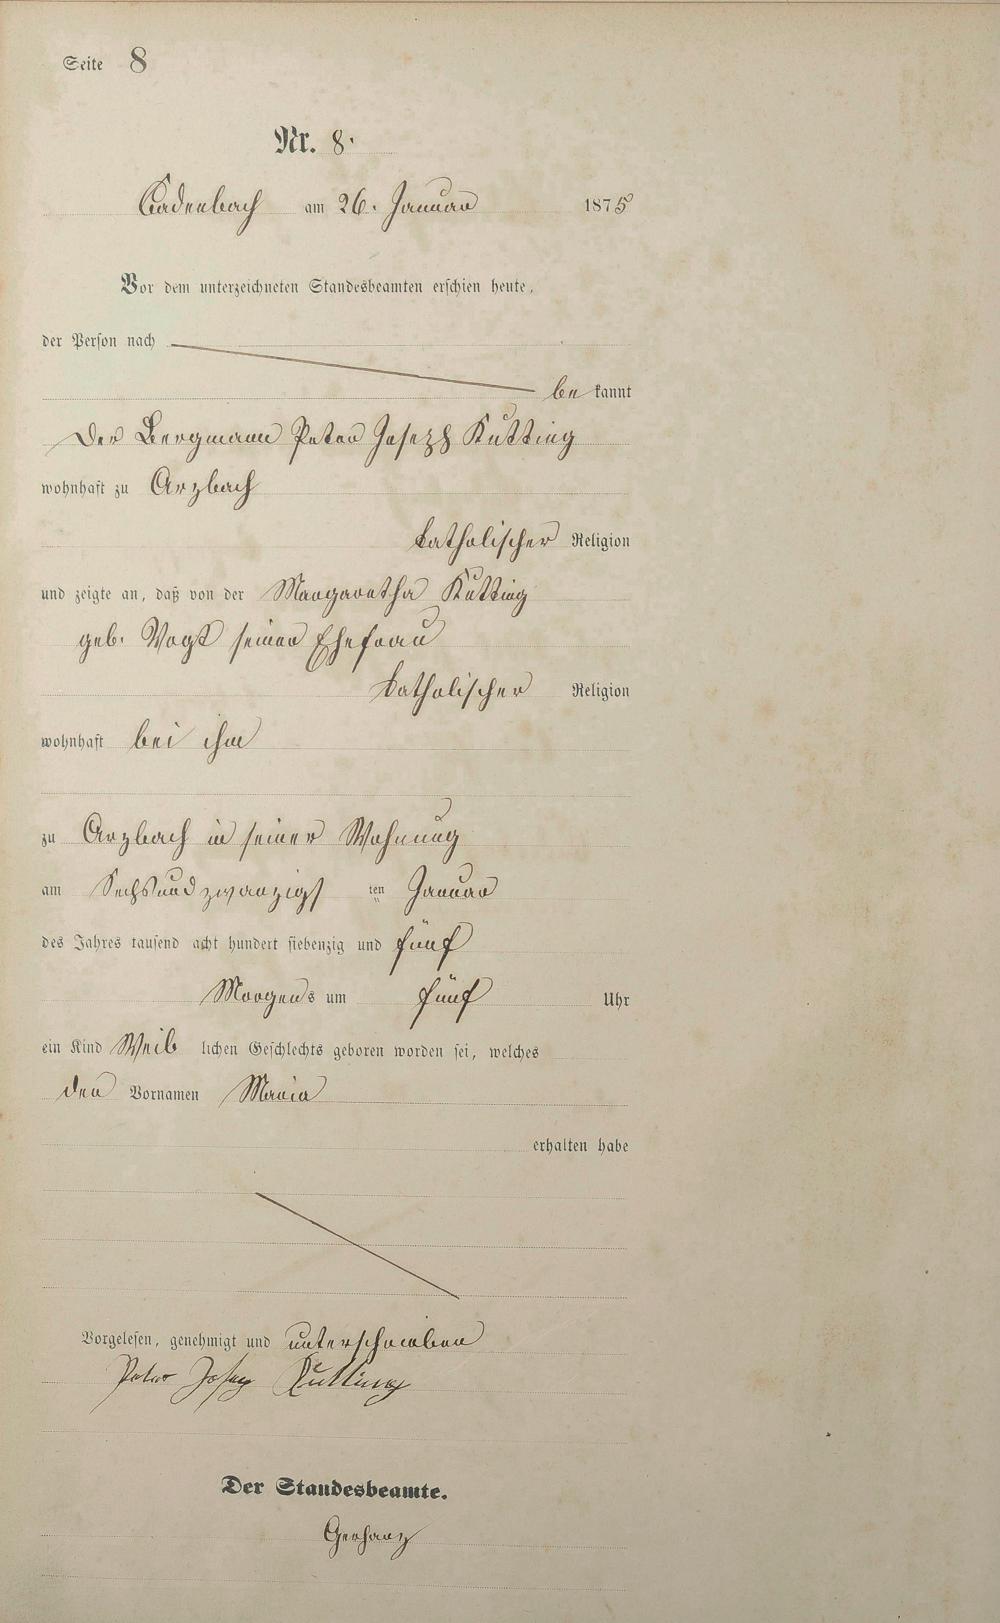 Seite 8
Nr. 8.
Cadenbach am 26. Januar 1875
Vor dem unterzeichneten Standesbeamten erschien heute,
der Person nach
be kannt
der Bergmann Peter Joseph Kutting
wohnhaft zu Arzbach
katholischer Religion
und zeigte an, daß von der Margaretha Kutting
geb. Vogt seiner Ehefrau
katholischer Religion
wohnhaft bei ihm
zu Arzbach in seiner Wohnung
am Sechsundzwanzigs ten Januar
des Jahres tausend acht hundert siebenzig und fünf
Morgens um fünf Uhr
ein Kind Weib lichen Geschlechts geboren worden sei, welches
den Vornamen Maria
erhalten habe
Vorgelesen, genehmigt und unterschrieben
Peter Josep Kutting
Der Standesbeamte.
Gerharz